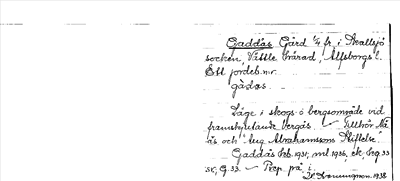 Gaddås Gård 1/4 fr. i Skallsjö
socken, Vättle härad, Älfsborgs l.
Ett jordeb.nr.
gådas.
Läge i skogs- o bergsområde vid
framskjutande bergås. Tillhör Nä
ås och "Aug. Abrahamssons Stiftelse".
Gaddås Jeb. 1951, ml. 1936, ek.
Prep. på i
1938